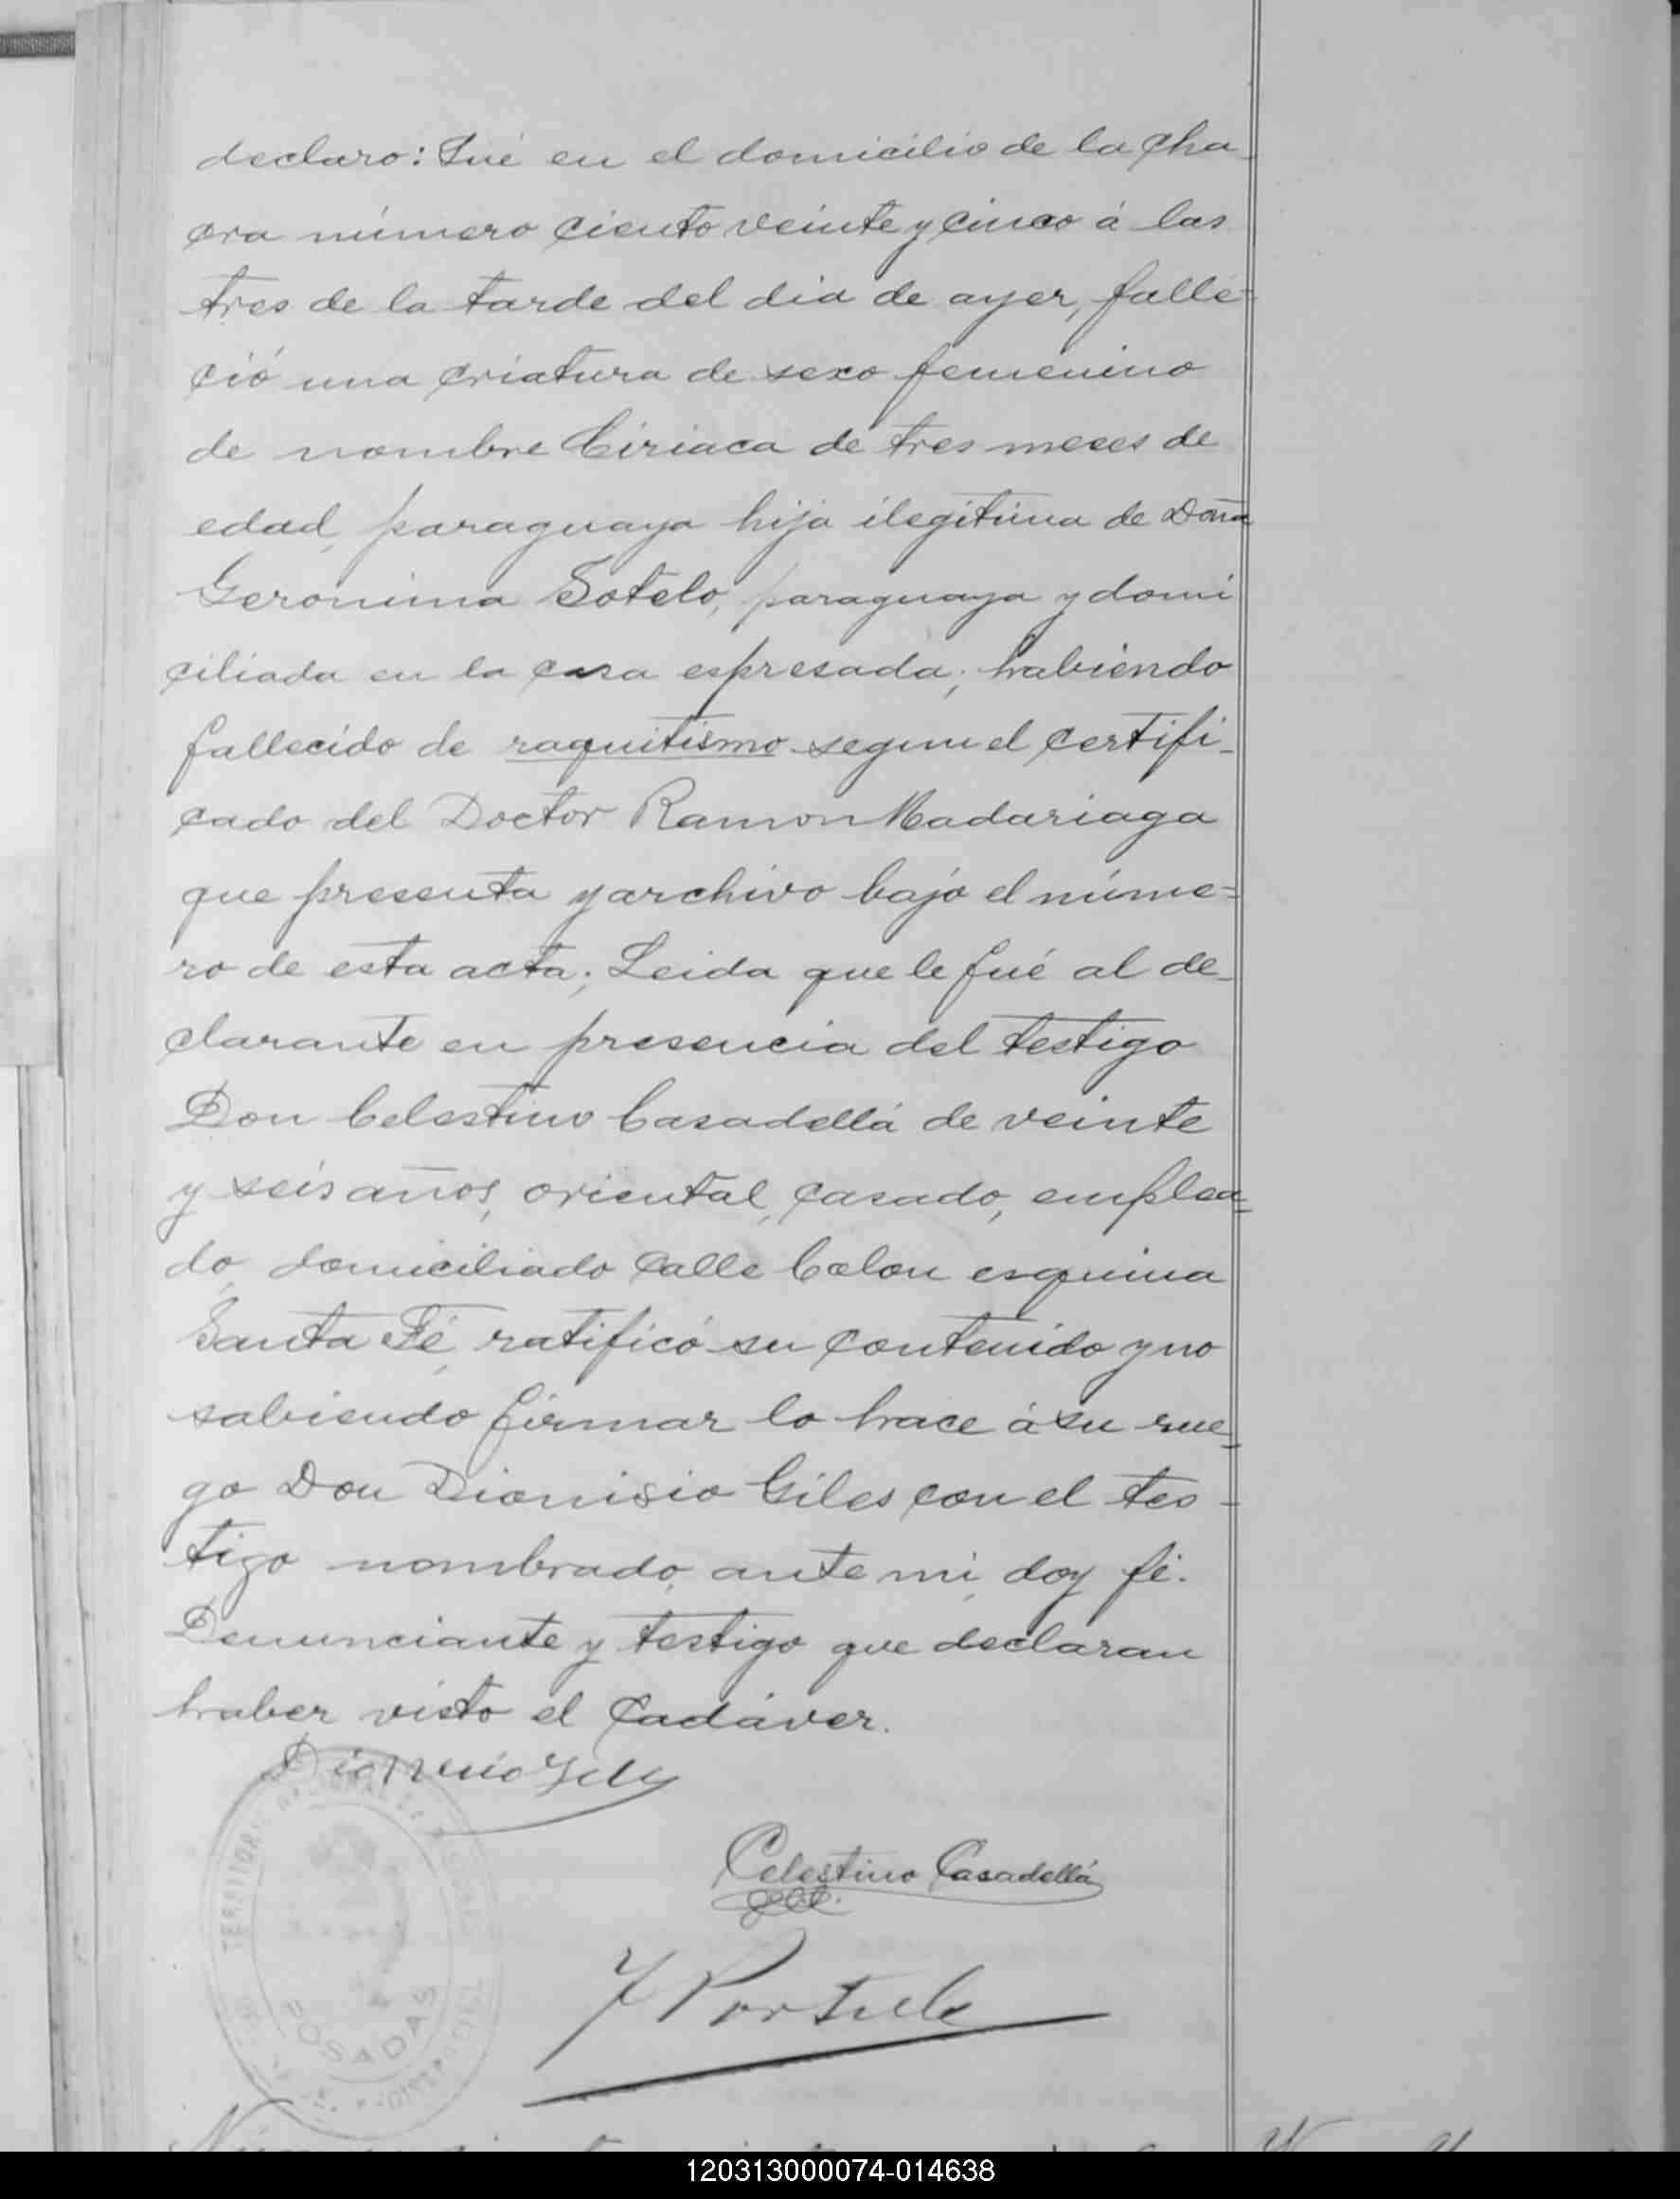 declaro: Qué en el domicilio de la Cha-
cra número ciento veinte y cinco á las
tres de la tarde del dia de ayer, falle-
ció una criatura de sexo femenino
de nombre Ciriaca de tres meses de
edad, paraguaya hija ilegítima de Doña
Geronima Sotelo, paraguaya y domi
ciliada en la casa espresada; habiendo
fallecido de raquitismo segun el certifi-
cado del Doctor Ramon Madariaga
que presenta y archivo bajo el núme-
ro de esta acta; Leida que le fué al de-
clarante en presencia del testigo
Don Celestino Casadellá de veinte
y seis años, oriental, casado, emplea-
do, domiciliado calle Colon esquina
Santa Fé, ratificó su contenido y no
sabiendo firmar lo hace á su rue-
go Don Dionisio Giles con el tes-
tigo nombrado, ante mi, doy fé.
Denunciante y testigo que declaran
haber visto el cadáver.
Dionisio Giles
Celestino Casadellá
TERRITORIO NACIONAL DE MISIONES
POSADAS
120313000074-014638